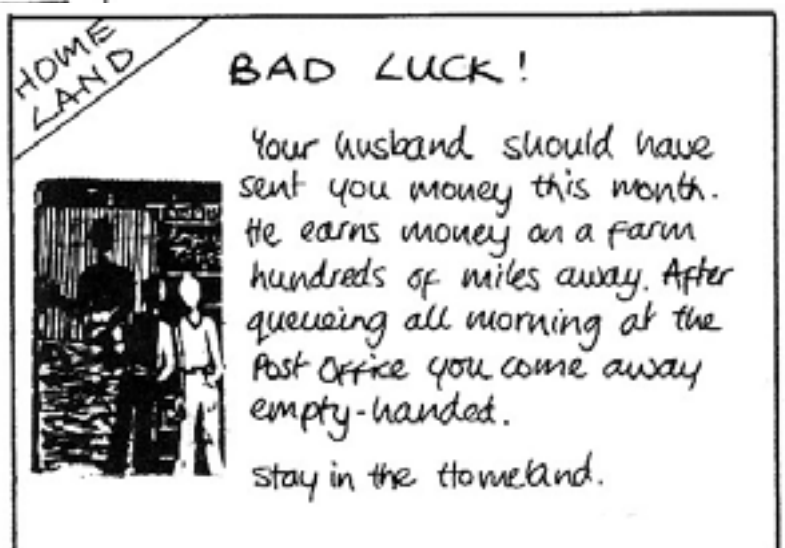 HOME
LAND
BAD LUCK!
Your husband should have
sent you money this month.
He earns money on a farm
hundreds of miles away. After
queueing all morning at the
Post Office you come away
empty-handed.
Stay in the Homeland.